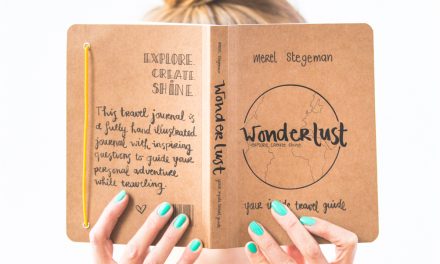 EXPLORE.
CREATE.
SHINE.
This travel journal is
a fully hand illustrated
journal with inspiring
questions to guide your
personal adventure
while traveling.
merel Stegeman
Wonderlust
your inside travel guide
merel Stegeman
Wonderlust
EXPLORE. CREATE. Shine.
your inside travel guide